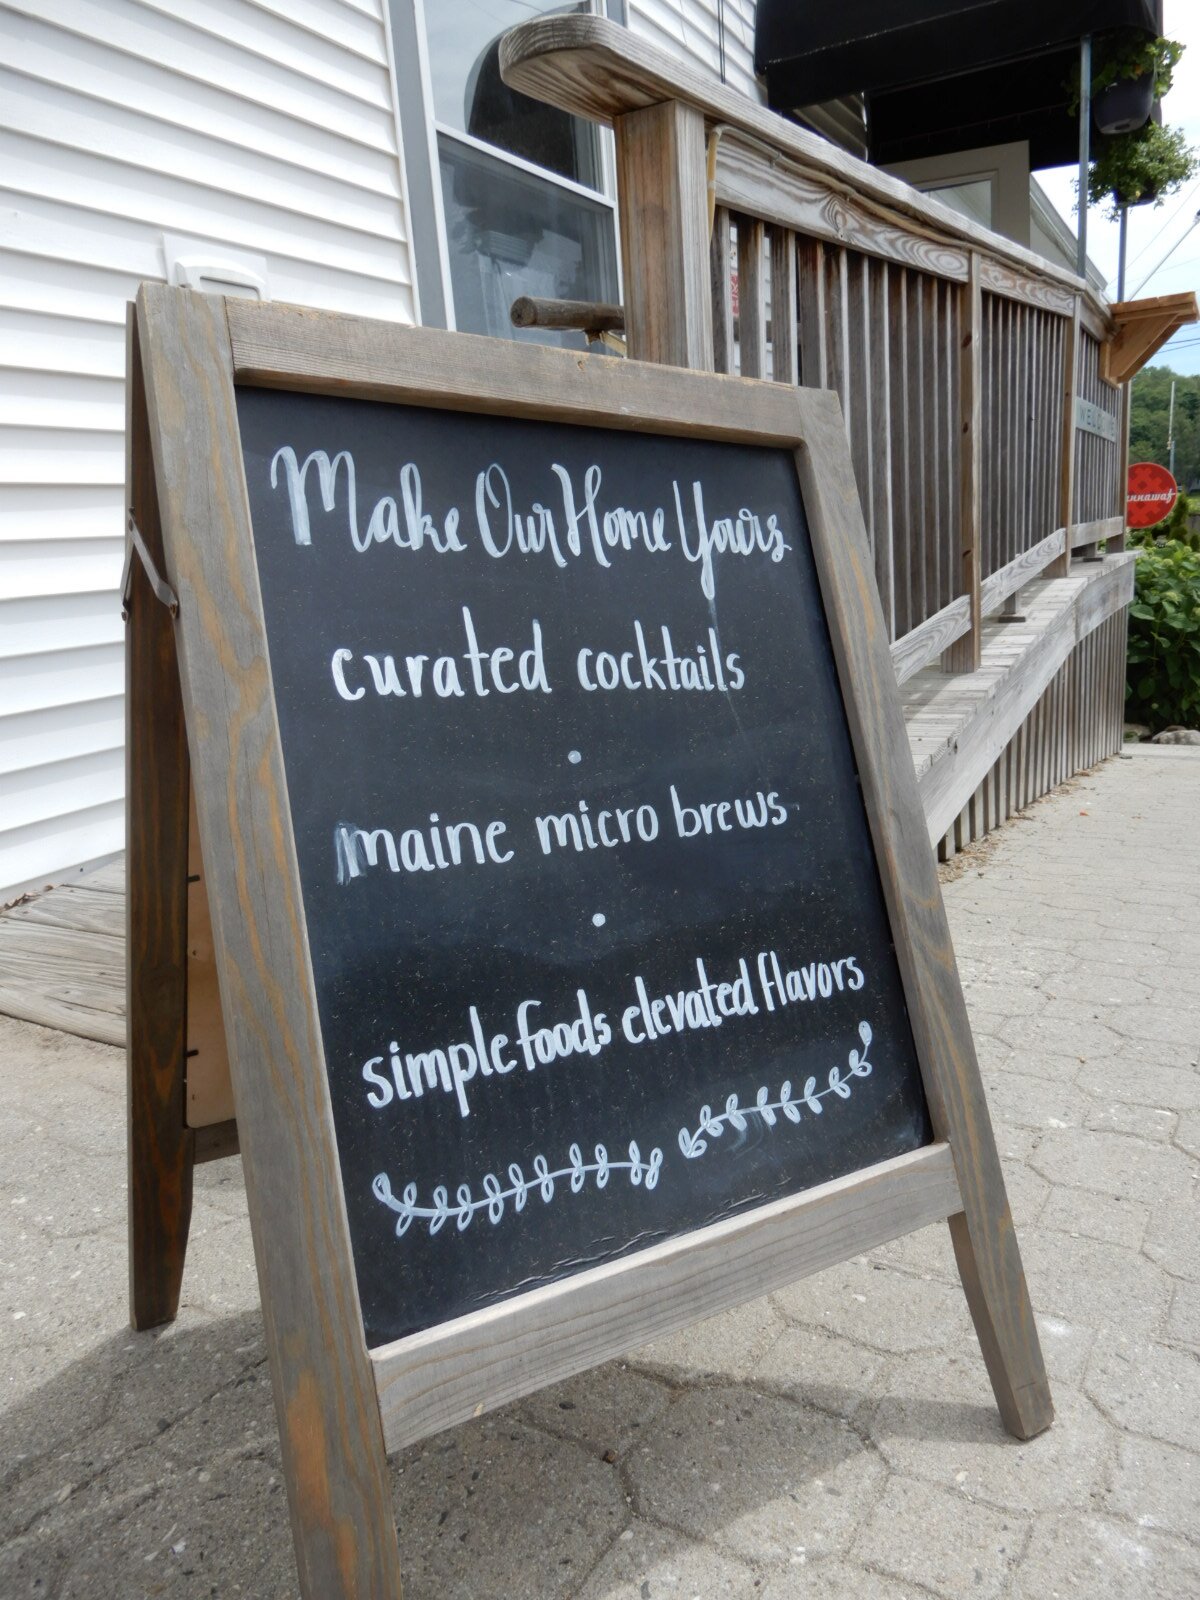 Make Our Home Yours
curated cocktails
maine micro brews
simple foods elevated flavors